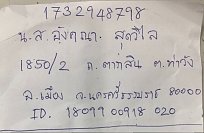 1732948798
น.ส.อังคณา สุตวิไล
1850/2 ถ.ตากสิน ต.ท่าวัง
อ.เมือง จ.นครศรีธรรมราช 80000
ID. 18099 00918 020